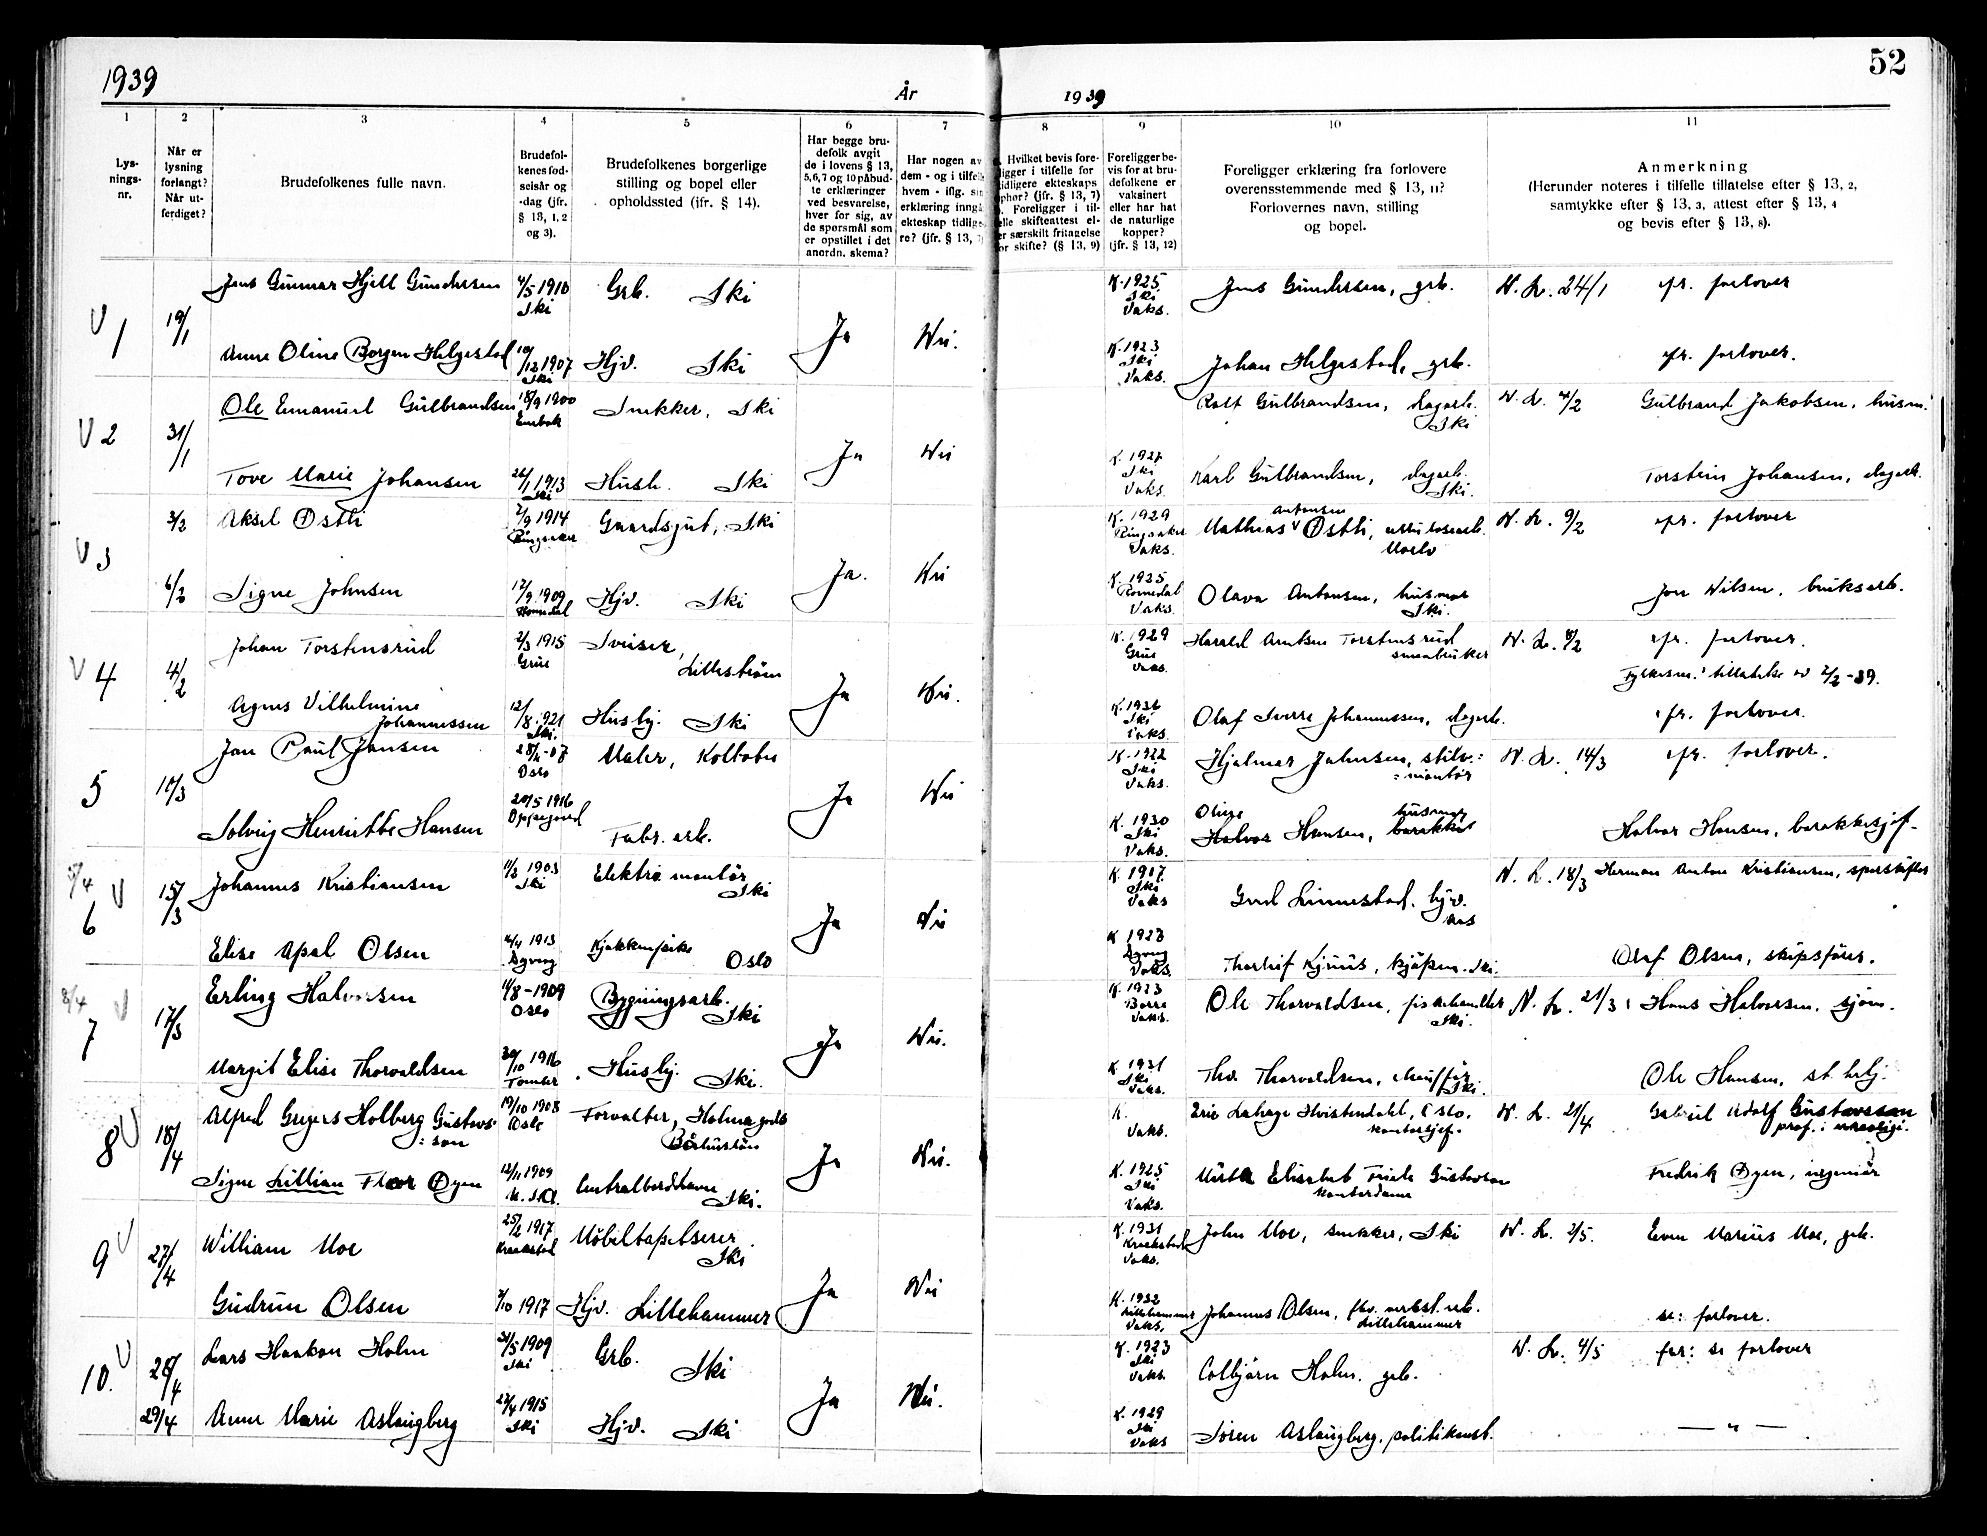 1939
År
1939
52
1
2
3
4
5
6
7
8
9
10
11
Lys-
nings-
nr.
Når er
lysning
forlangt?
Når ut-
ferdiget?
Brudefolkenes fulle navn.
Brudefol-
kenes fød-
selsår og
-dag (jfr.
§ 13, 1, 2
og 3).
Brudefolkenes borgerlige
stilling og bopel eller
opholdssted (ifr. § 14).
Har begge bru-
defolk avgit
de i lovens § 13,
5,6,7 og 10 påbud-
te erklæringer
ved besvarelse,
hver for sig, av
de spørsmål som
er opstillet i det
anordn. skema?
Har nogen av
dem - og i tilfelle
hvem - iflg. sin
erklæring inngå
ekteskap tidlige-
re? (jfr. § 13, 7)
Hvilket bevis fore-
ligger i tilfelle for
tidligere ekteskaps
ophør? (jfr. § 13, 7)
Foreligger i til-
felle skifteattest el-
er særskilt fritagelse
for skifte? (§ 13, 9)
Foreligger be-
vis for at bru-
defolkene er
vaksinert
eller har hat
de naturlige
kopper?
(jfr. § 13, 12)
Foreligger erklæring fra forlovere
overensstemmende med § 13, 11?
Forlovernes navn, stilling
og bopel.
Anmerkning
(Herunder noteres i tilfelle tillatelse efter § 13, 2,
samtykke efter § 13, 3, attest efter § 13, 4
og bevis efter § 13, 8).
V 1 19/1 Jens Gunnar Hjell Gundersen 4/5 1910 Ski Grb. Ski Ja Nei. K. 1925 Ski Vaks. Jens Gundersen, grb. N. L. 24/1 fr. forlover
Anne Oline Borgen Helgestad 10/12 1907 Ski Hjv. Ski K. 1923 Ski Vaks. Johan Helgestad, grb. fr. forlover.
V 2 31/1 Ole Emanuel Gulbrandsen 18/9 1900 Snekker, Ski Ja Nei Rolf Gulbrandsen, dagarb. Ski N. L. 4/2 Gulbrand Jakobsen, husm.
Tove Marie Johansen 26/1 1913 Ski Hush. Ski K. 1927 Ski Vaks. Karl Gulbrandsen, dagarb. Ski. Torstein Johansen, dagarb.
V 3 3/2 Aksel Østli 2/9 1914 Ringsaker Gaardsgut, Ski Ja. Nei K. 1929 Ringsaker Vaks. Mathias Antonsen Østli, N. L. 9/2 fr. forlover
6/2 Signe Johnsen 12/9 1909 Romedal Hjv. Ski K. 1925 Romedal Vaks. Olava Antonsen, husmor Ski. Jon Nilsen, bruksarb.
V 4 4/2 Johan Torstensrud 2/3 1915 Grue Sveiser, Lillestrøm Ja Nei. K. 1929 Grue Vaks. Harald Arntsen Torstensrud småbruker N. L. 8/2 fr. forlover.
Fylkesm. tillatelse av 2/2-39.
Agnes Vilhelmine Johannessen 12/8 1921 Ski. Husbj. Ski K. 1936 Ski Vaks. Olaf Sverre Johannessen, dagarb. fr. forlover.
5 10/3 Jan Paul Jansen Oslo Maler, Kolbotn Ja Nei K. 1922 Ski Vaks. Hjalmar Jahnsen, montør N. L. 14/3 fr. forlover.
Solveig Henriette Hansen 20/5 1916 Oppegaard Fabr. arb. K. 1930 Ski Vaks. Halvor Hansen, husmor Halvor Hansen, barakkesjef.
5/4 V 6 15/3 Johannes Kristiansen 1903 Ski Elektro montør Ski Ja Nei K. 1917 Ski Vaks Gerd Linnestad, hjv. Aas N. L. 18/3 Herman Anton Kristiansen, sporskifter
Elise Apal Olsen 1913 Kjøkkenpike Oslo K. 1928 Vaks. Thorleif Kjuus, kjøpm. Ski. Olaf Olsen, skipsfører.
8/4 V 7 17/3 Erling Halvorsen 1/8-1909 Oslo Bygningsarb. Ski Ja Nei. K. 1923 Borre Vaks. Ole Thorvaldsen, fiskehandler Ski. N. L. 21/3 Hans Halvorsen, sjøm.
Margit Elise Thorvaldsen 30/10 1916 Tomter Husbj. Ski. K. 1931 Ski Vaks. Thv. Thorvaldsen, chauffør Ski. Ole Hansen, st. betj.
8 V 18/4 Alfred Gregers Holberg Gustavs-son 19/10 1908 Oslo Forvalter, Holma gods Båhuslän Ja Nei. K. Vaks. Eric Hvistendahl, Oslo. kontorsjef. N. L. 21/4 Gabriel Adolf Gustavsson
Signe Lillian Floor Øyen 12/11 1909 Centralbordbest. Ski. K. 1925 Ski Vaks. Elisabet Gustavson kontordame Fredrik Øyen, ingeniør
9 V 27/4 William Moe 25/2 1917 Kraakstad Møbeltapetserer. Ski Ja Nei K. 1931 Kraakstad Vaks. John Moe, snekker, Ski N. L. 2/5. Even Marius Moe, grb.
Gudrun Olsen 7/10 1917 Hjv. Lillehammer K. 1932 Lillehammer Vaks. Johannes Olsen, Lillehammer se: forlover.
10. V 28/4 Lars Haakon Holm 31/5 1909 Ski Grb. Ski Ja Nei. K. 1923 Ski Vaks. Colbjørn Holm, grb. N. L. 4/5 far: se forlover
29/4 Anne Marie Aslaugberg 27/4 1915 Ski Hjv. Ski K. 1929 Ski Vaks Søren Aslaugberg, politikonst. — " —